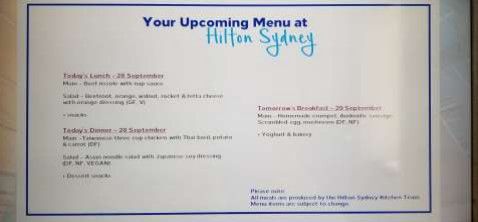 Your Upcoming Menu at
Hilton Sydney
Today's Lunch - 28 September
Main - Beef noodle with nap sauce
Salad - Beetroot, orange, walnut, rocket & fetta cheese
with orange dressing (GF, V)
• snacks
Today's Dinner - 28 September
Main - Taiwanese three cup chicken with Thai basil, potato
& carrot (DF)
Salad - Asian noodle salad with Japanese soy dressing
(DF, NF, VEGAN)
• Dessert snacks
Tomorrow's Breakfast - 29 September
Main - Homemade crumpet, sausage,
Scrambled egg, mushroom (DF, NF)
• Yoghurt & bakery
Please note:
All meals are produced by the Hilton Sydney Kitchen Team.
Menu items are subject to change.